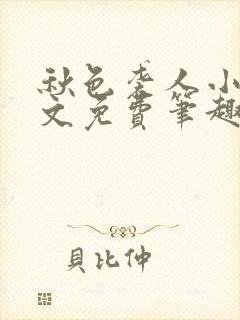 秋色老人小
文免费笔趣
貝比仲